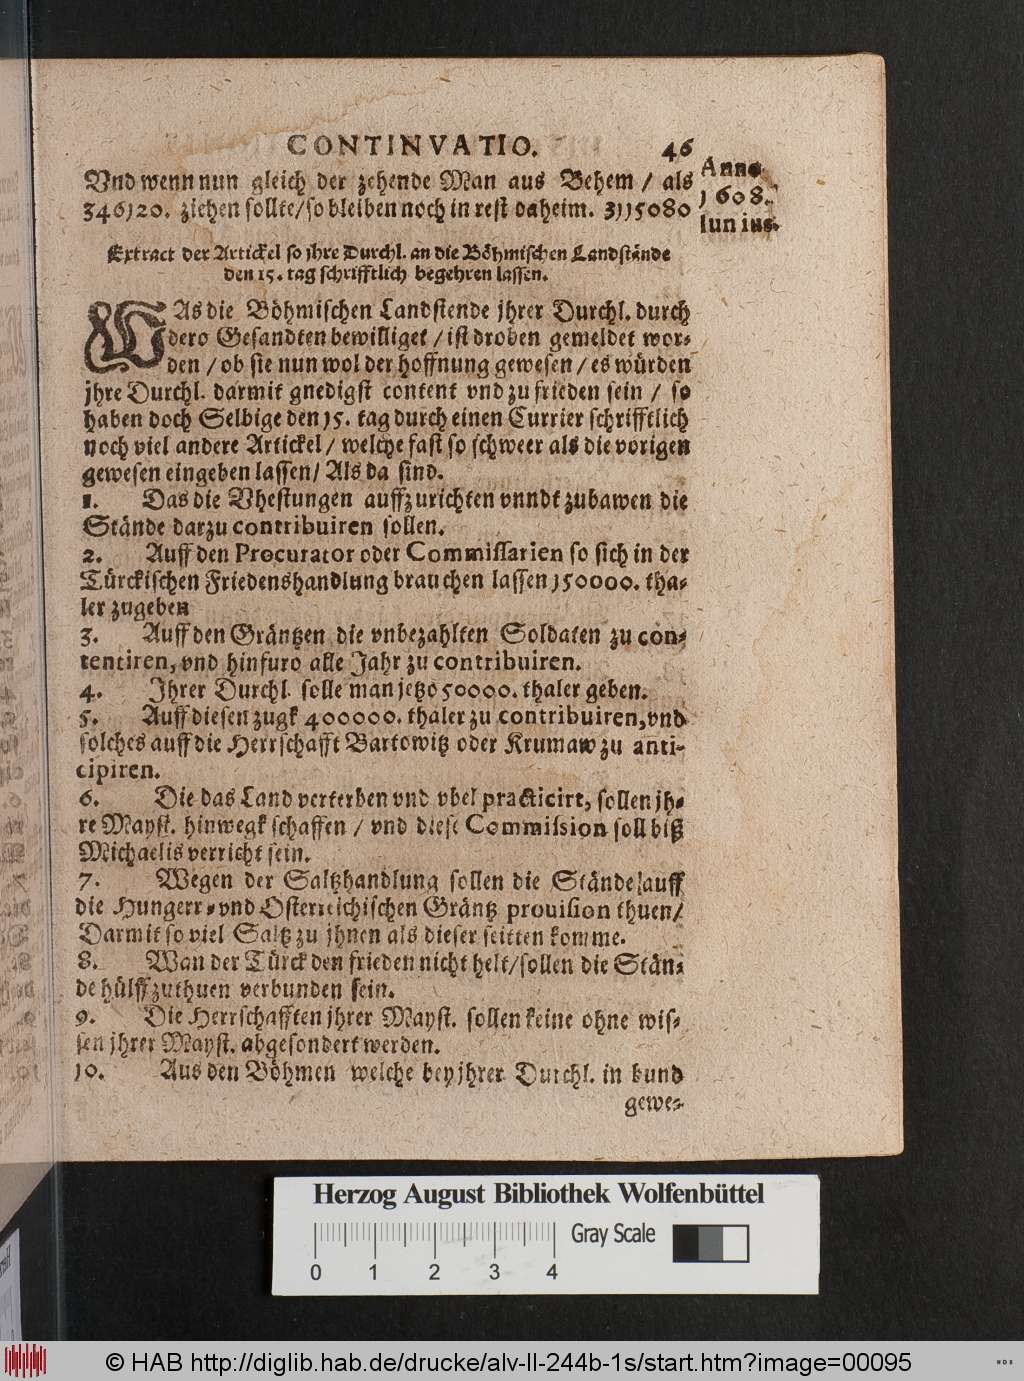 CONTINVATIO. 46
Vnd wenn nun gleich der zehende Man aus Behem / als
346120. ziehen sollte / so bleiben noch in rest daheim. 3115080
Anno
1608.
Iunius.
Extract der Artickel so jhre Durchl. an die Böhmischen Landstände
den 15. tag schrifftlich begehren lassen.
WAs die Böhmischen Landstende jhrer Durchl. durch
dero Gesandten bewilliget / ist droben gemeldet wor-
den / ob sie nun wol der hoffnung gewesen / es würden
jhre Durchl. darmit gnedigst content vnd zu frieden sein / so
haben doch Selbige den 15. tag durch einen Currier schrifftlich
noch viel andere Artickel / welche fast so schweer als die vorigen
gewesen eingeben lassen / Als da sind.
1. Das die Vhestungen auffzurichten vnndt zubawen die
Stände darzu contribuiren sollen.
2. Auff den Procurator oder Commissarien so sich in der
Türckischen Friedenshandlung brauchen lassen 150000. tha-
ler zugeben
3. Auff den Gräntzen die vnbezahlten Soldaten zu con-
tentiren, vnd hinfuro alle Jahr zu contribuiren.
4. Jhrer Durchl. solle man jetzo 50000. thaler geben.
5. Auff diesen zugk 400000. thaler zu contribuiren, vnd
solches auff die Herrschafft Bartowitz oder Krumaw zu anti-
cipiren.
6. Die das Land verterben vnd vbel practicirt, sollen jh-
re Mayst. hinwegk schaffen / vnd diese Commission soll biß
Michaelis verricht sein.
7. Wegen der Saltzhandlung sollen die Stände auff
die Hungerr- vnd Osterreichischen Gräntz prouision thuen /
Darmit so viel Saltz zu jhnen als dieser seitten komme.
8. Wan der Türck den frieden nicht helt / sollen die Stän-
de hülff zuthuen verbunden sein.
9. Die Herrschafften jhrer Mayst. sollen keine ohne wis-
sen jhrer Mayst. abgesondert werden.
10. Aus den Böhmen welche bey jhrer Durchl. in bund
gewe-
Herzog August Bibliothek Wolfenbüttel
Gray Scale
0 1 2 3 4
© HAB http://diglib.hab.de/drucke/alv-ll-244b-1s/start.htm?image=00095